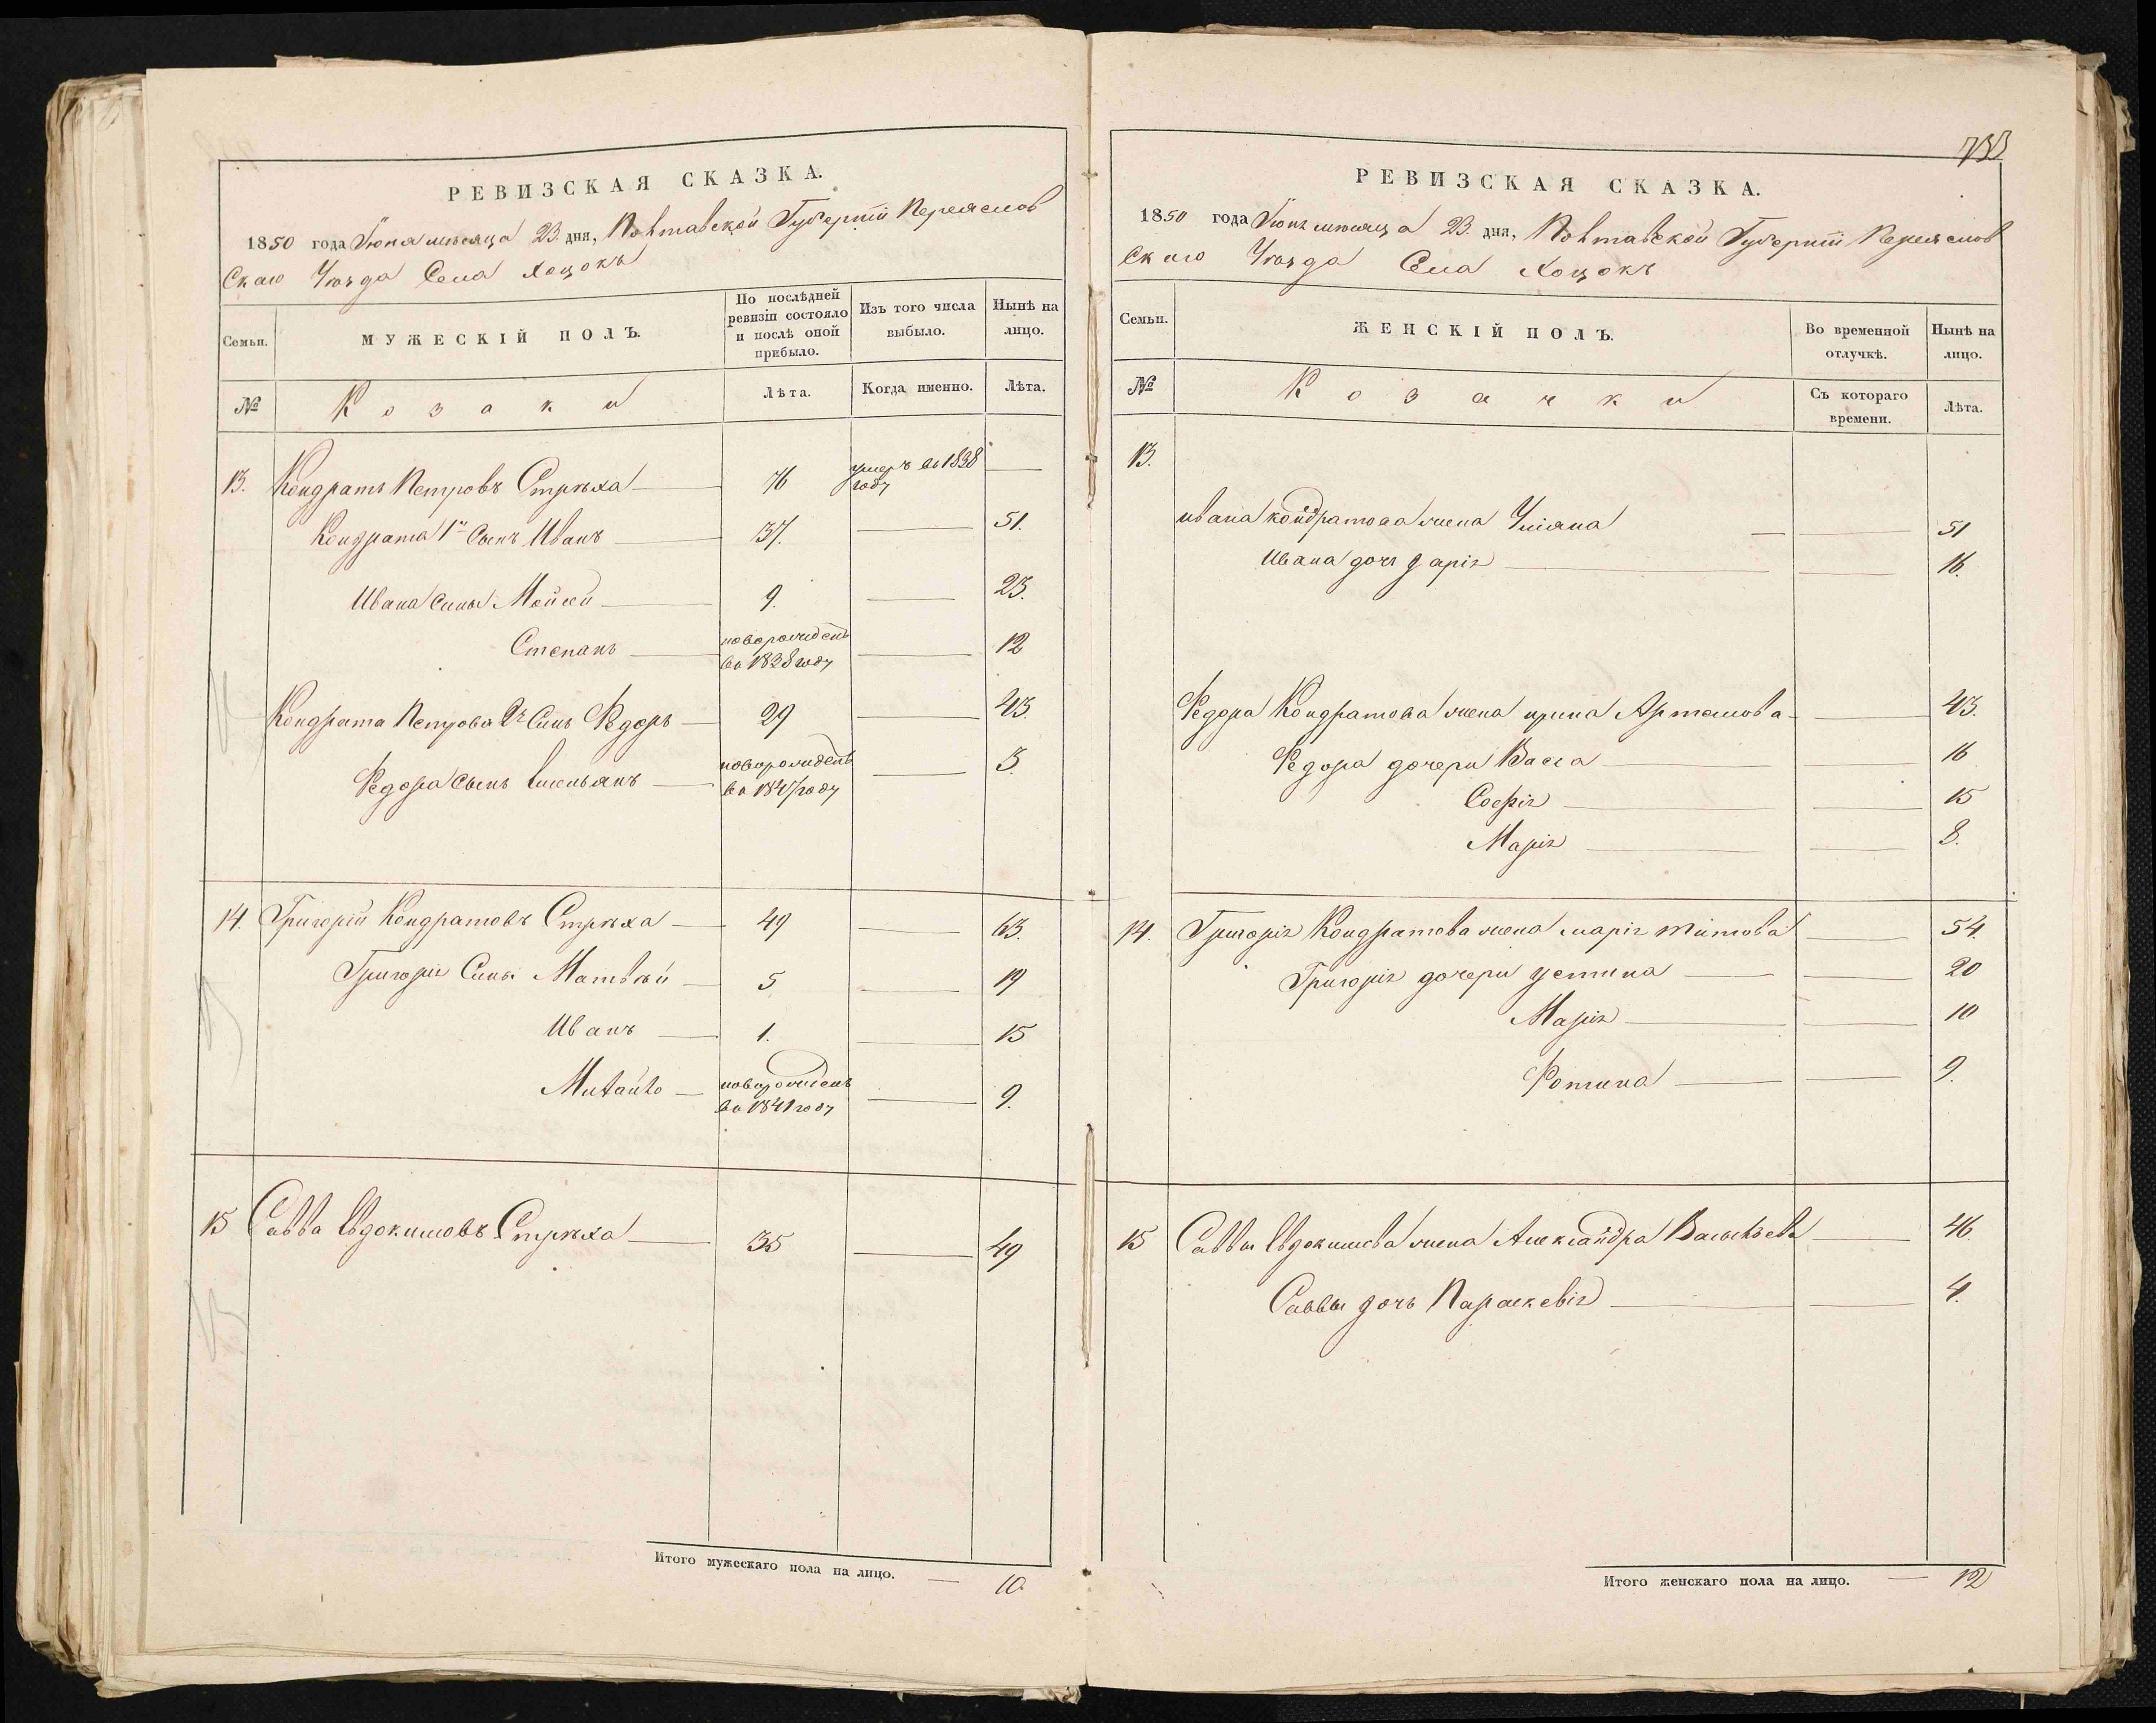 РЕВИЗСКАЯ СКАЗКА.
1850 года Іюня мѣсяца 23 дня, Полтавской Губерніи Переяслов
Скаго Уѣзда Села Хоцокъ
Семьи.
МУЖЕСКІЙ ПОЛЪ.
По послѣдней ревизіи состояло и послѣ оной прибыло.
Изъ того числа выбыло.
Нынѣ на лицо.
№
Козаки
Лѣта.
Когда именно.
Лѣта.
13. Кондратъ Петровъ Стрѣха — 76 умеръ въ 1838 году —
Кондрата 1й Сынъ Иванъ — 37. — 51.
Ивана Сины Мойсей — 9. — 23.
Степанъ — новорожденъ во 1838 году — 12
Кондрата Петрова 2й Синъ Федоръ — 29 — 43.
Федора Сынъ Емельянъ — новорожденъ во 1847 году — 3.
14. Григорій Кондратовъ Стрѣха — 49 — 63.
Григорія Сины Матвѣй — 5 — 19
Иванъ — 1. — 15
Михайло — новорожденъ во 1841 году — 9.
15 Савва Евдокимовъ Стрѣха — 35 — 49
Итого мужескаго пола на лицо. — 10
РЕВИЗСКАЯ СКАЗКА.
1850 года Іюня мѣсяца 23. дня, Полтавской Губерніи Переяслов
Скаго Уѣзда Села Хоцокъ
Семьи.
ЖЕНСКІЙ ПОЛЪ.
Во временной отлучкѣ.
Нынѣ на лицо.
№
Козачки
Съ котораго времени.
Лѣта.
13.
Ивана Кондратова жена Уліяна — — 51
Ивана дочь Дарія — — 16.
Федора Кондратова жена ирина Артемова — 43.
Федора дочери Васса — — 16
Софія — — 15
Марія — — 8.
14. Григорія Кондратова жена марія титова — 54.
Григорія дочери устина — — 20
Марія — — 10
Фотина — — 9.
15 Саввы Евдокимова жена Александра Васильева — 46.
Саввы дочь Параскевія — — 4.
Итого женскаго пола на лицо. — 12